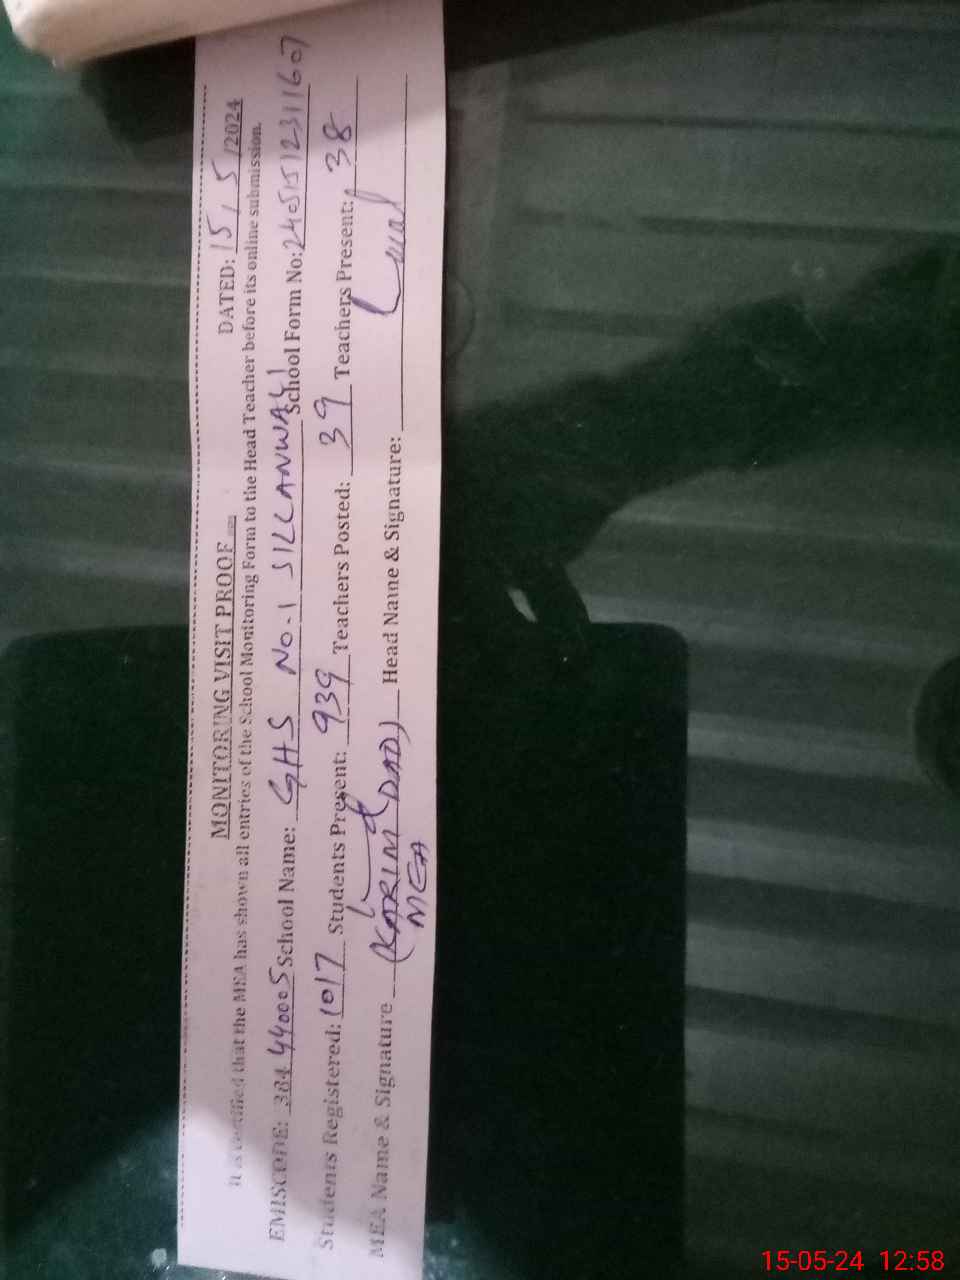 MONITORING VISIT PROOF DATED: 15/5/2024
It is certified that the MEA has shown all entries of the School Monitoring Form to the Head Teacher before its online submission.
EMISCODE: 384440005 School Name: GHS No-1 SILLANWALI School Form No: 240515123111607
Students Registered: 1017 Students Present: 939 Teachers Posted: 39 Teachers Present: 38
MEA Name & Signature (KARIM DAD) Head Name & Signature:
MEA
15-05-24 12:58